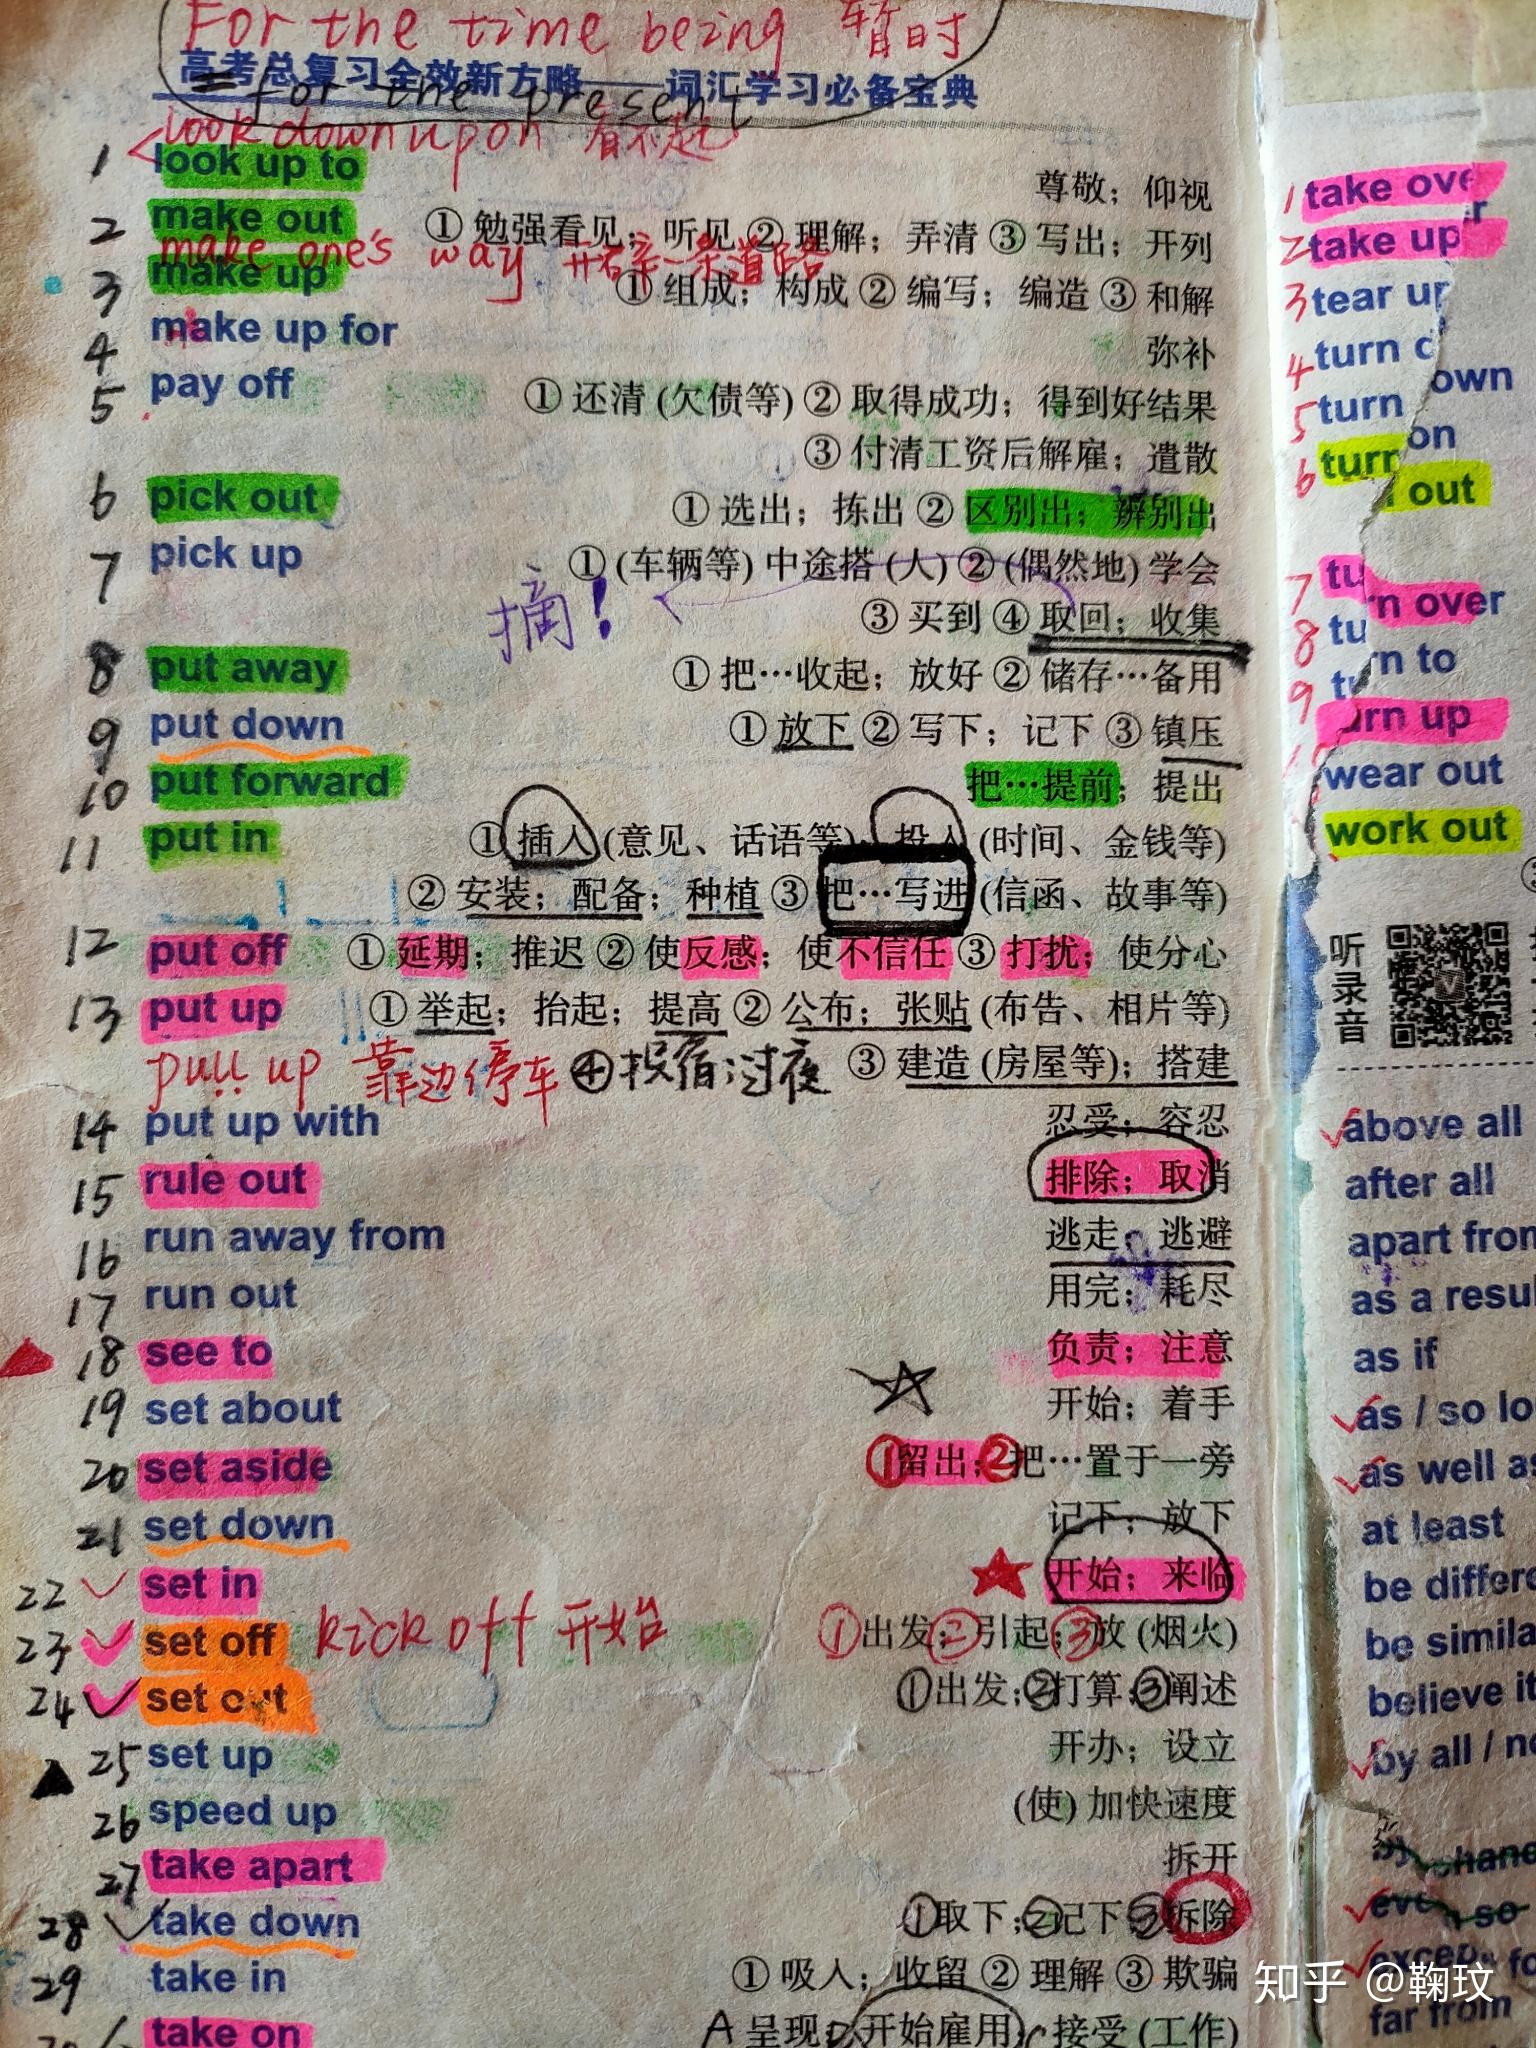 For the time being 暂时
高考总复习全效新方略——词汇学习必备宝典
= for the present
look down upon 看不起
1 look up to 尊敬；仰视
2 make out ① 勉强看见；听见 ② 理解；弄清 ③ 写出；开列
make one's way 开辟一条道路
3 make up ① 组成；构成 ② 编写；编造 ③ 和解
4 make up for 弥补
5 pay off ① 还清 (欠债等) ② 取得成功；得到好结果
③ 付清工资后解雇；遣散
6 pick out ① 选出；拣出 ② 区别出；辨别出
7 pick up ① (车辆等) 中途搭 (人) ② (偶然地) 学会
摘！ ③ 买到 ④ 取回；收集
8 put away ① 把…收起；放好 ② 储存…备用
9 put down ① 放下 ② 写下；记下 ③ 镇压
10 put forward 把…提前；提出
11 put in ① 插入 (意见、话语等)、投入 (时间、金钱等)
② 安装；配备；种植 ③ 把…写进 (信函、故事等)
12 put off ① 延期；推迟 ② 使反感；使不信任 ③ 打扰；使分心
13 put up ① 举起；抬起；提高 ② 公布；张贴 (布告、相片等)
pull up 靠边停车 ④投宿过夜 ③ 建造 (房屋等)；搭建
14 put up with 忍受；容忍
15 rule out 排除；取消
16 run away from 逃走；逃避
17 run out 用完；耗尽
18 see to 负责；注意
19 set about 开始；着手
20 set aside ①留出；②把…置于一旁
21 set down 记下；放下
22 set in 开始；来临
23 set off kick off 开始 ①出发；②引起；③放 (烟火)
24 set out ①出发；②打算；③阐述
25 set up 开办；设立
26 speed up (使) 加快速度
27 take apart 拆开
28 take down ①取下；②记下；③拆除
29 take in ① 吸入；收留 ② 理解 ③ 欺骗
take on A 呈现 B 开始雇用 C 接受 (工作)
1 take over
2 take up
3 tear up
4 turn down
5 turn on
6 turn out
7 turn over
8 turn to
9 turn up
10 wear out
work out
听录音
above all
after all
apart from
as a resul
as if
as / so lo
as well as
at least
be differe
be simila
believe it
by all / no
even so
except fo
far from
知乎 @鞠玟